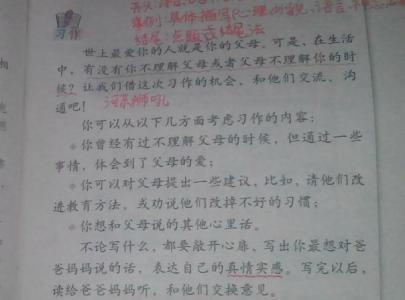 习作
世上最爱你的人就是你的父母。可是，在生活
中，有没有你不理解父母或者父母不理解你的时
候？让我们借这次习作的机会，和他们交流、沟
通吧！
你可以从以下几方面考虑习作的内容：
你曾经有过不理解父母的时候，但通过一些
事情，体会到了父母的爱；
你可以对父母提出一些建议，比如，请他们改
进教育方法，或劝说他们改掉不好的习惯；
你想和父母说的其他心里话。
不论写什么，都要敞开心扉，写出你最想对爸
爸妈妈说的话，表达自己的真情实感。写完以后，
读给爸爸妈妈听，和他们交换意见。